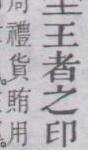 王者之印
周禮貨賄用